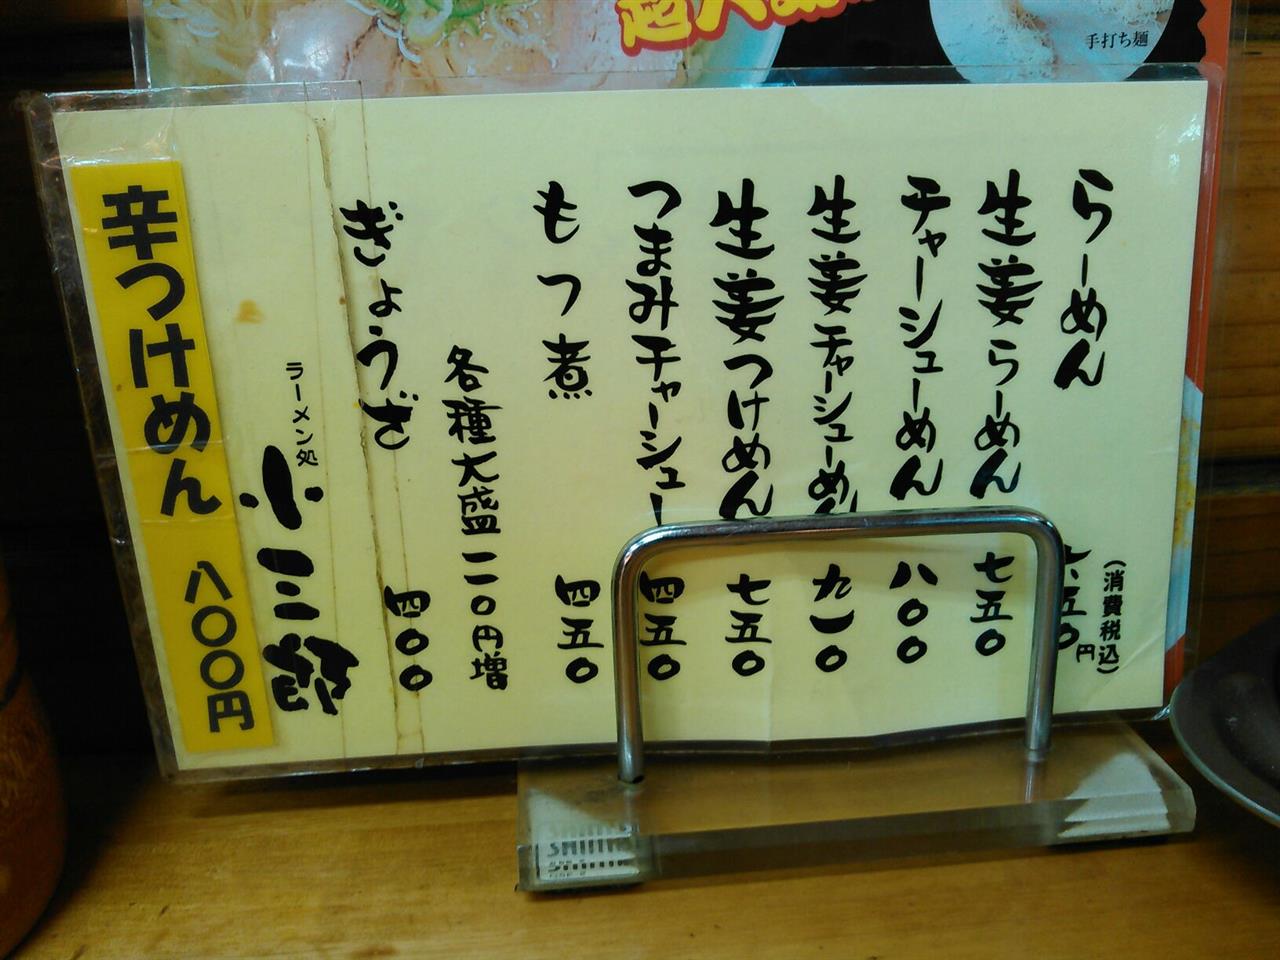 手打ち麺
(消費税込)
らーめん 六五〇円
生姜らーめん 七五〇
チャーシューめん 八〇〇
生姜チャーシューめん 九一〇
生姜つけめん 七五〇
つまみチャーシュー 四五〇
もつ煮 四五〇
各種大盛一二〇円増
ぎょうざ 四〇〇
ラーメン処
小三郎
辛つけめん 八〇〇円